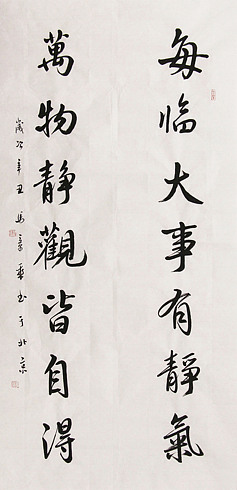 每临大事有靜氣
萬物靜觀皆自得
歲次辛丑
书于北京